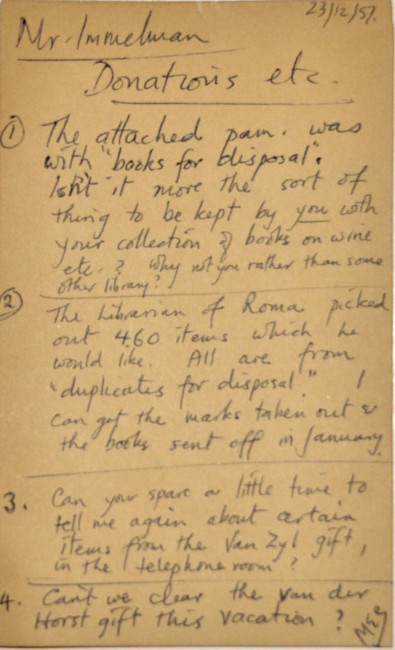 23/12/57.
Mr. Immelman
Donations etc.
① The attached pam. was
with "books for disposal".
Isn't it more the sort of
thing to be kept by you with
your collection of books on wine
etc.? Why not you rather than some
other library?
② The Librarian of Roma picked
out 460 items which he
would like. All are from
"duplicates for disposal." I
can get the marks taken out &
the books sent off in January.
3. Can you spare a little time to
tell me again about certain
items from the Van Zyl gift,
in the telephone room?
4. Can't we clear the van der
Horst gift this vacation?